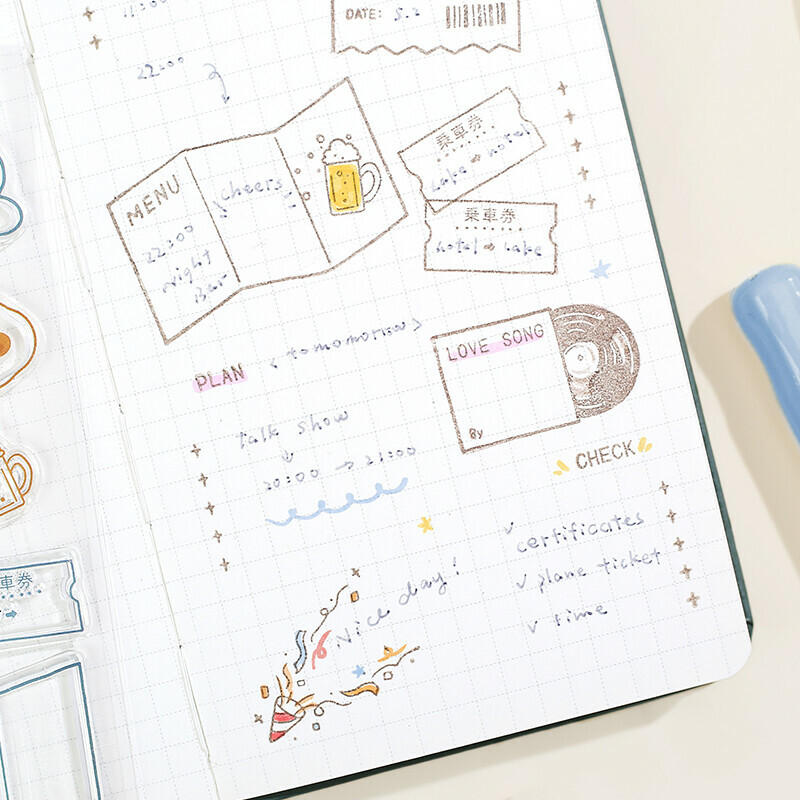 11:00
DATE: 5.2
22:00
MENU
22:00
night
Bar
cheers
乗車券
Lake → hotel
乗車券
hotel → Lake
PLAN < tomomorrow >
talk show
20:00 → 21:00
LOVE SONG
By
CHECK
✓ certificates
✓ plane ticket
✓ time
Nice day!
車券